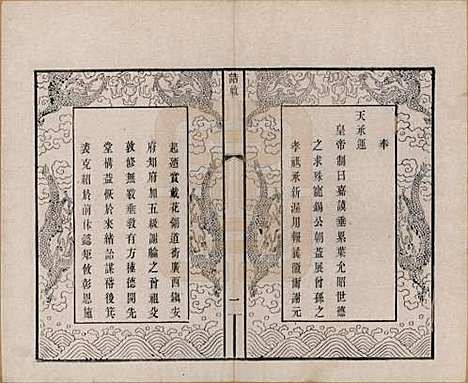 奉
天承運
皇帝制曰嘉謨垂累葉允昭世德
之求殊寵錫公朝益展曾孫之
孝祗承新渥用報展徽爾謝元
誥敕
一
起運賞戴花翎道銜廣西鎮安
府知府加五級謝 之曾祖父
敦修無斁垂教有方種德開先
堂構益恢於來緒詒謀啓後箕
裘克紹於前休認矩攸彰恩施